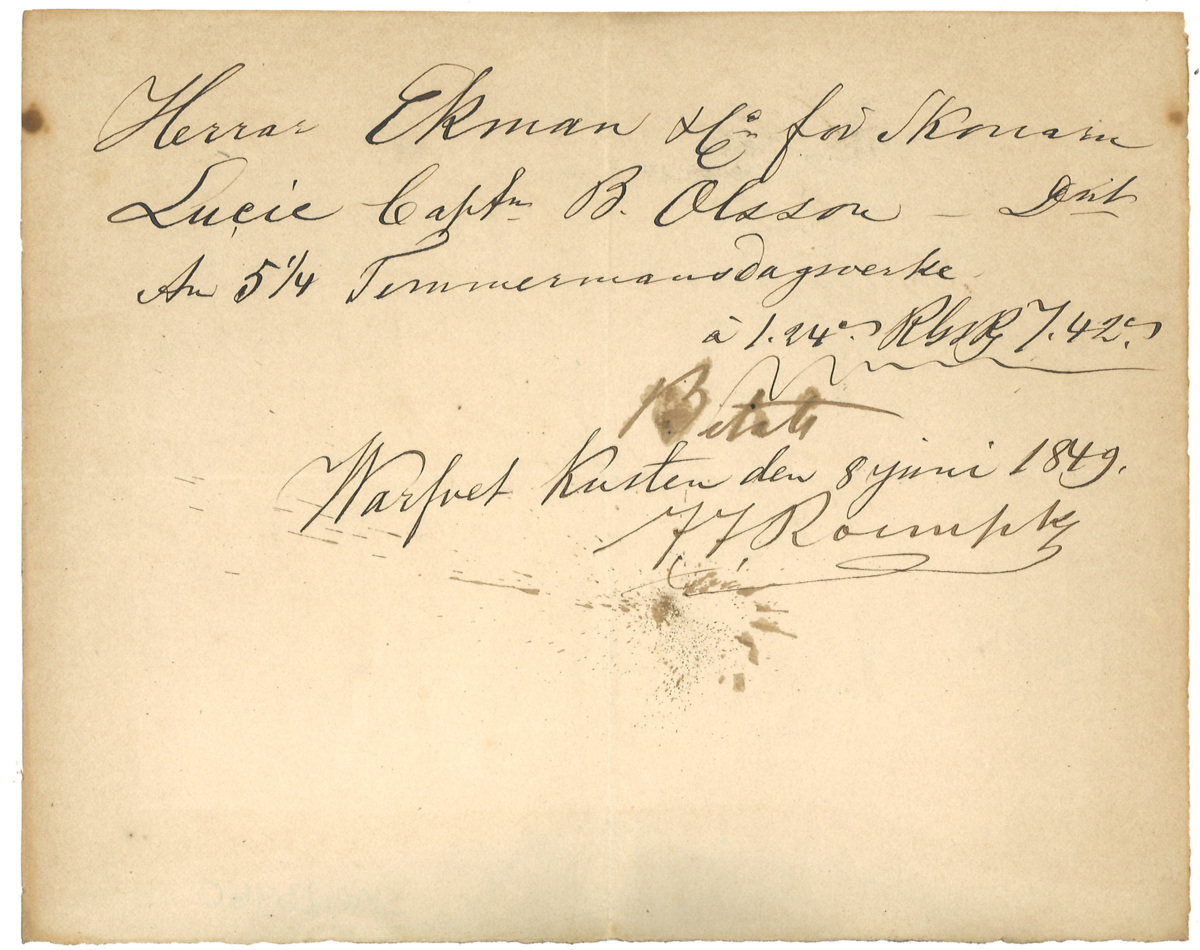 Herrar Ekman & Co för Skonarn
Lucie Captn B. Olsson – Debt
An 5 1/4 Timmermansdagsverke
à 1.24 s. RGsRG 7.42 s.
Betalt
Warfvet Kusten den 8 juni 1849.